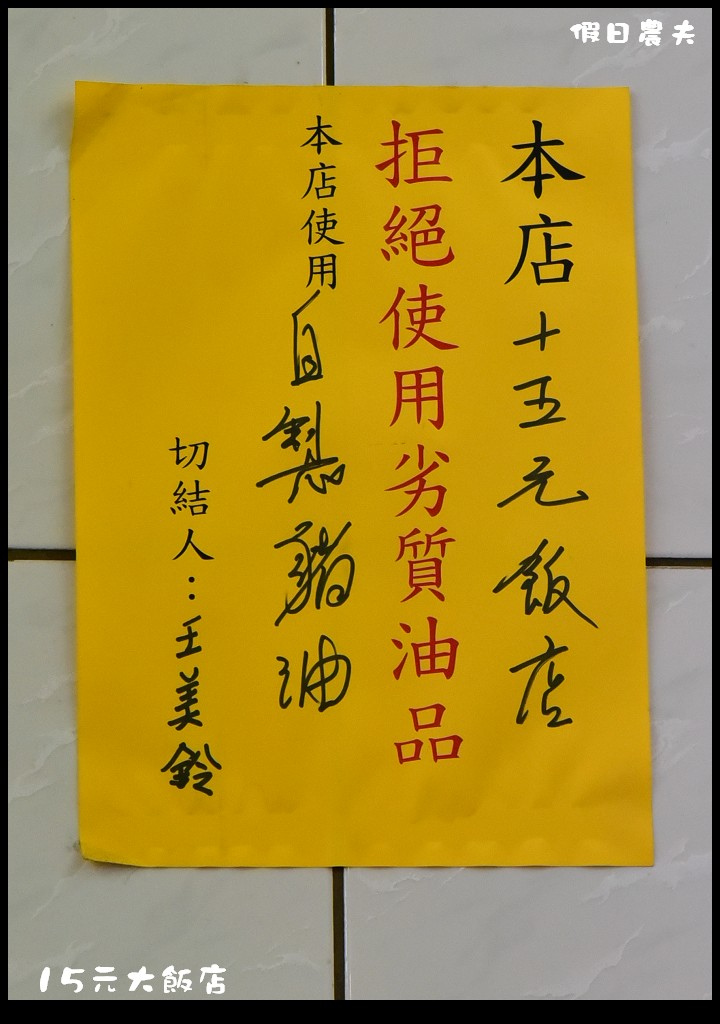 假日農夫
本店十五元飯店
拒絕使用劣質油品
本店使用自製豬油
切結人：王美鈴
15元大飯店